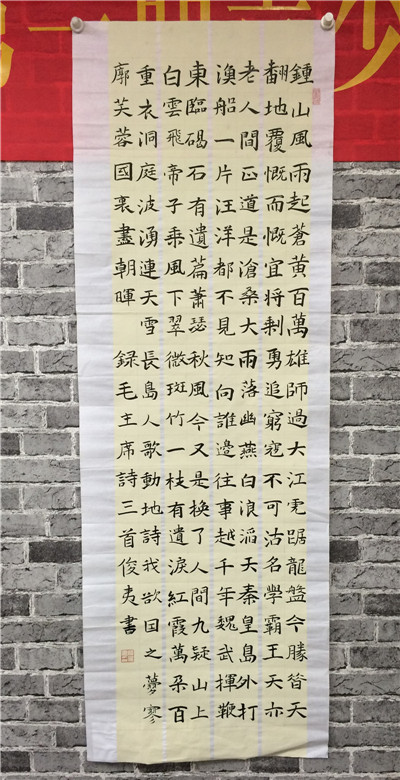 鍾山風雨起蒼黄百萬雄師過大江虎踞龍盤今勝昔天
翻地覆慨而慷宜將剩勇追窮寇不可沽名學霸王天亦
老人間正道是滄桑大雨落幽燕白浪滔天秦皇島外打
漁船一片汪洋都不見知向誰邊往事越千年魏武揮鞭
東臨碣石有遺篇蕭瑟秋風今又是换了人間九疑山上
白雲飛帝子乘風下翠微斑竹一枝有遺淚紅霞萬朵百
重衣洞庭波湧連天雪長島人歌動地詩我欲因之夢寥
廓芙蓉國裏盡朝暉 録毛主席詩三首俊夷書